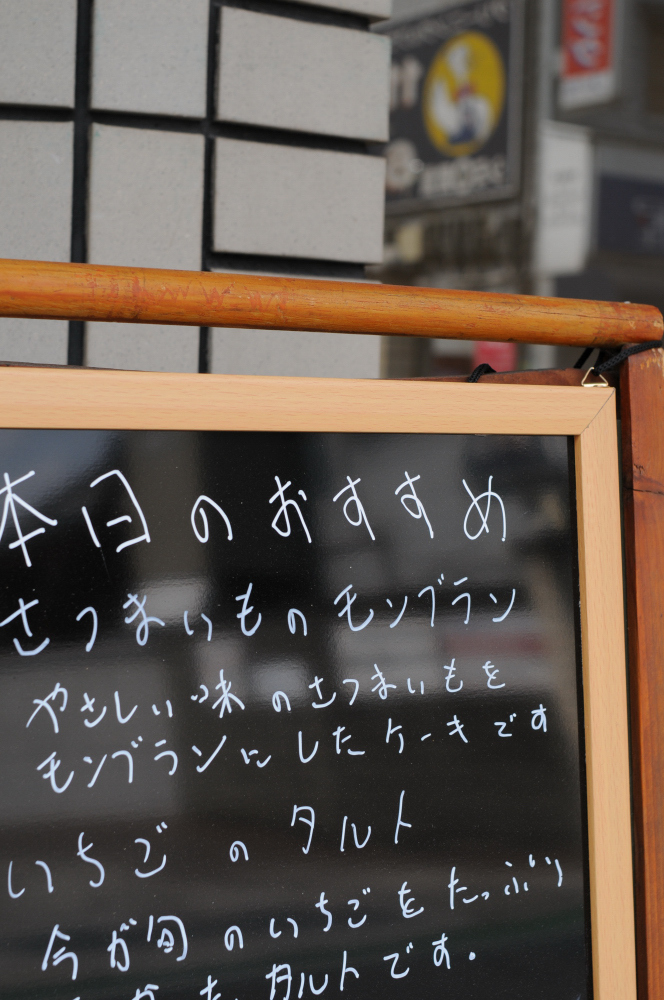 本日のおすすめ
さつまいものモンブラン
やさしい味のさつまいもを
モンブランにしたケーキです
いちごのタルト
今が旬のいちごをたっぷり
タルトです.